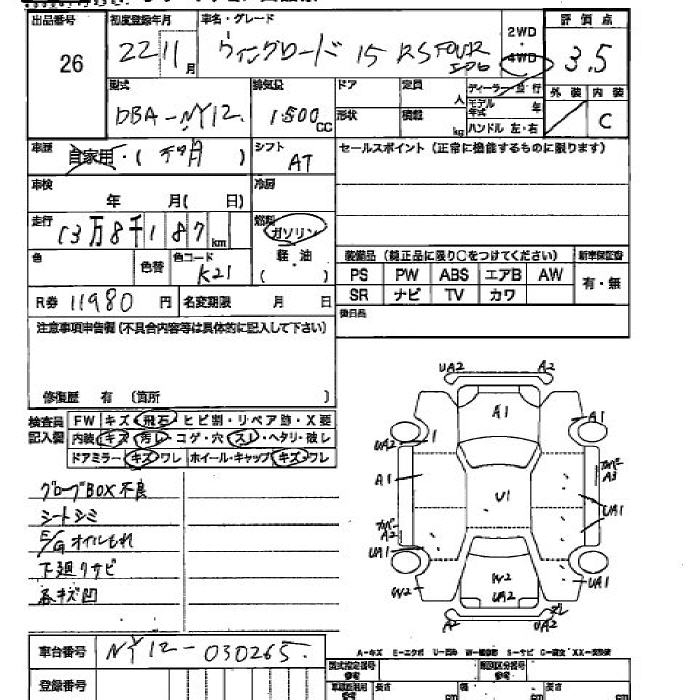 出品番号 初度登録年月 車名・グレード 2WD 評価点
26 22 11月 ウィングロード 15 RSFOUR 4WD 3.5
型式 排気量 ドア 定員 人 ディーラー 並行 外装 内装
DBA-NY12 1500CC 形状 積載 kg モデル年式 年 C
ハンドル 左・右
車歴 自家用・( ) シフト AT セールスポイント (正常に機能するものに限ります)
車検 年 月( 日) 冷房
走行 13万8千187km 燃料 ガソリン
色 色替 色コード K21 軽油 ( )
装備品 (純正品に限り○をつけてください) 新車保証書
PS PW ABS エアB AW 有・無
SR ナビ TV カワ
R券 11980円 名変期限 月 日
後日品
注意事項申告欄 (不具合内容等は具体的に記入して下さい)
修復歴 有 (箇所 )
検査員記入欄 FW キズ・飛石・ヒビ割・リペア跡・X要
内装 キズ・汚レ・コゲ・穴・スレ・ヘタリ・破レ
ドアミラー キズ・ワレ ホイール・キャップ キズ・ワレ
グローブBOX不良
シートシミ
E/Gオイルもれ
下廻りサビ
各キズ凹
UA2 A2
A1 A1
UA2 1
A1 カバー A3
U1 UA1
カバー A2
UA1 UA1
W2 W2 UA2
A2 ズレ
車台番号 NY12-030265
登録番号
A-キズ E-エクボ U-凹み W-補修跡 S-サビ C-腐食 XX-交換済
型式指定番号 類別区分番号
長さ cm 幅 cm 高さ cm